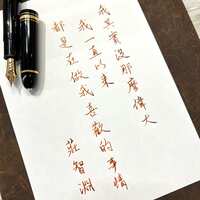 我其實沒那麼偉大
我一直以來
都是在做我喜歡的事情
莊智淵